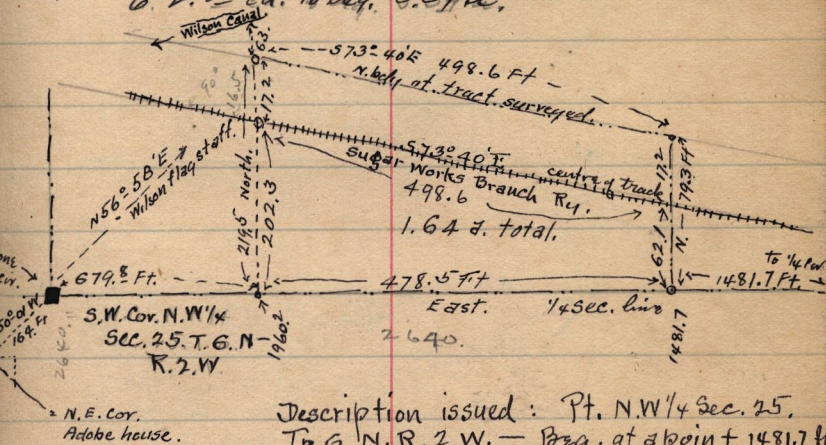 Wilson Canal
63.
S73°40'E 498.6 Ft
N. bdy of tract surveyed.
16.5
17.2
N56°58'E
Wilson flagstaff.
S73°40'E.
centre of track
Sugar Works Branch Ry.
498.6
1.64 a. total.
219.5 North.
202.3
17.2
62.1
N. 79.3 Ft
to 1/4 Cor.
679.8 Ft.
478.5 Ft
1481.7 Ft.
East. 1/4 Sec. line
S.W. Cor. N.W 1/4
Sec. 25. T. 6. N-
R. 2. W
2640.
1960.2
2640.
1481.7
164. Ft
N.E. Cor.
Adobe house.
Description issued: Pt. N.W 1/4 Sec. 25.
Tp 6 N. R. 2 W. — Beg. at a point 1481.7